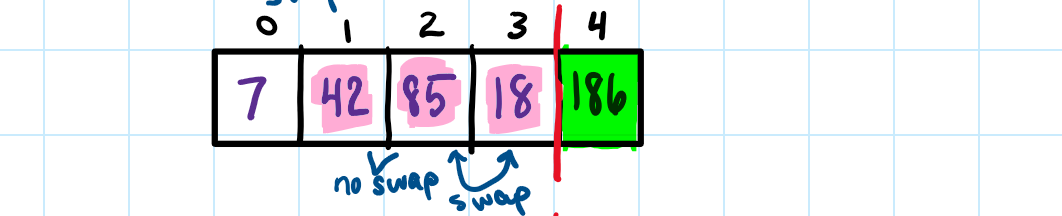 0 1 2 3 4
7 42 85 18 186
no swap swap